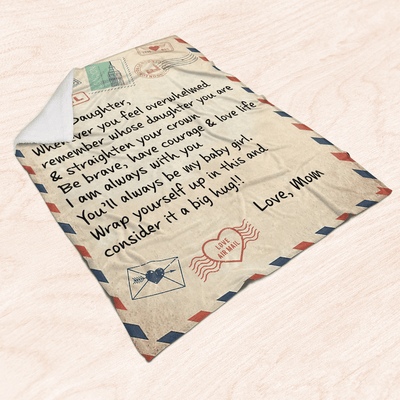 Daughter,
Whenever you feel overwhelmed
remember whose daughter you are
& straighten your crown
Be brave, have courage & love life
I am always with you
You'll always be my baby girl.
Wrap yourself up in this and
consider it a big hug!!
Love, Mom
LOVE
AIR MAIL